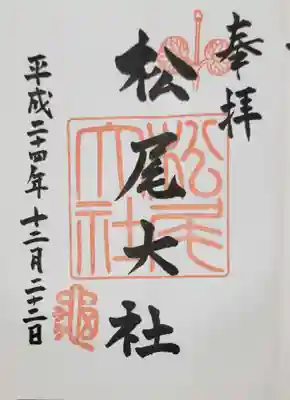 奉拝
松尾大社
松尾大社
平成二十四年十二月二十二日